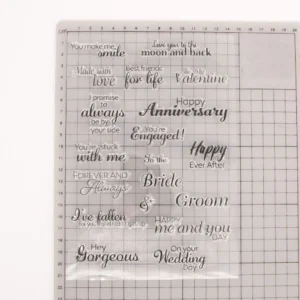 You make me
smile
Love you to the
moon and back
Made with
love
best friends
for life
Valentine
I promise
to
always
be by
your side
Happy
Anniversary
You're
Engaged!
You're stuck
with me
To the
Happy
Ever After
FOREVER AND
Always
Bride
&
Groom
I've fallen
HAPPY
me and you
DAY
Hey
Gorgeous
On your
Wedding
Day